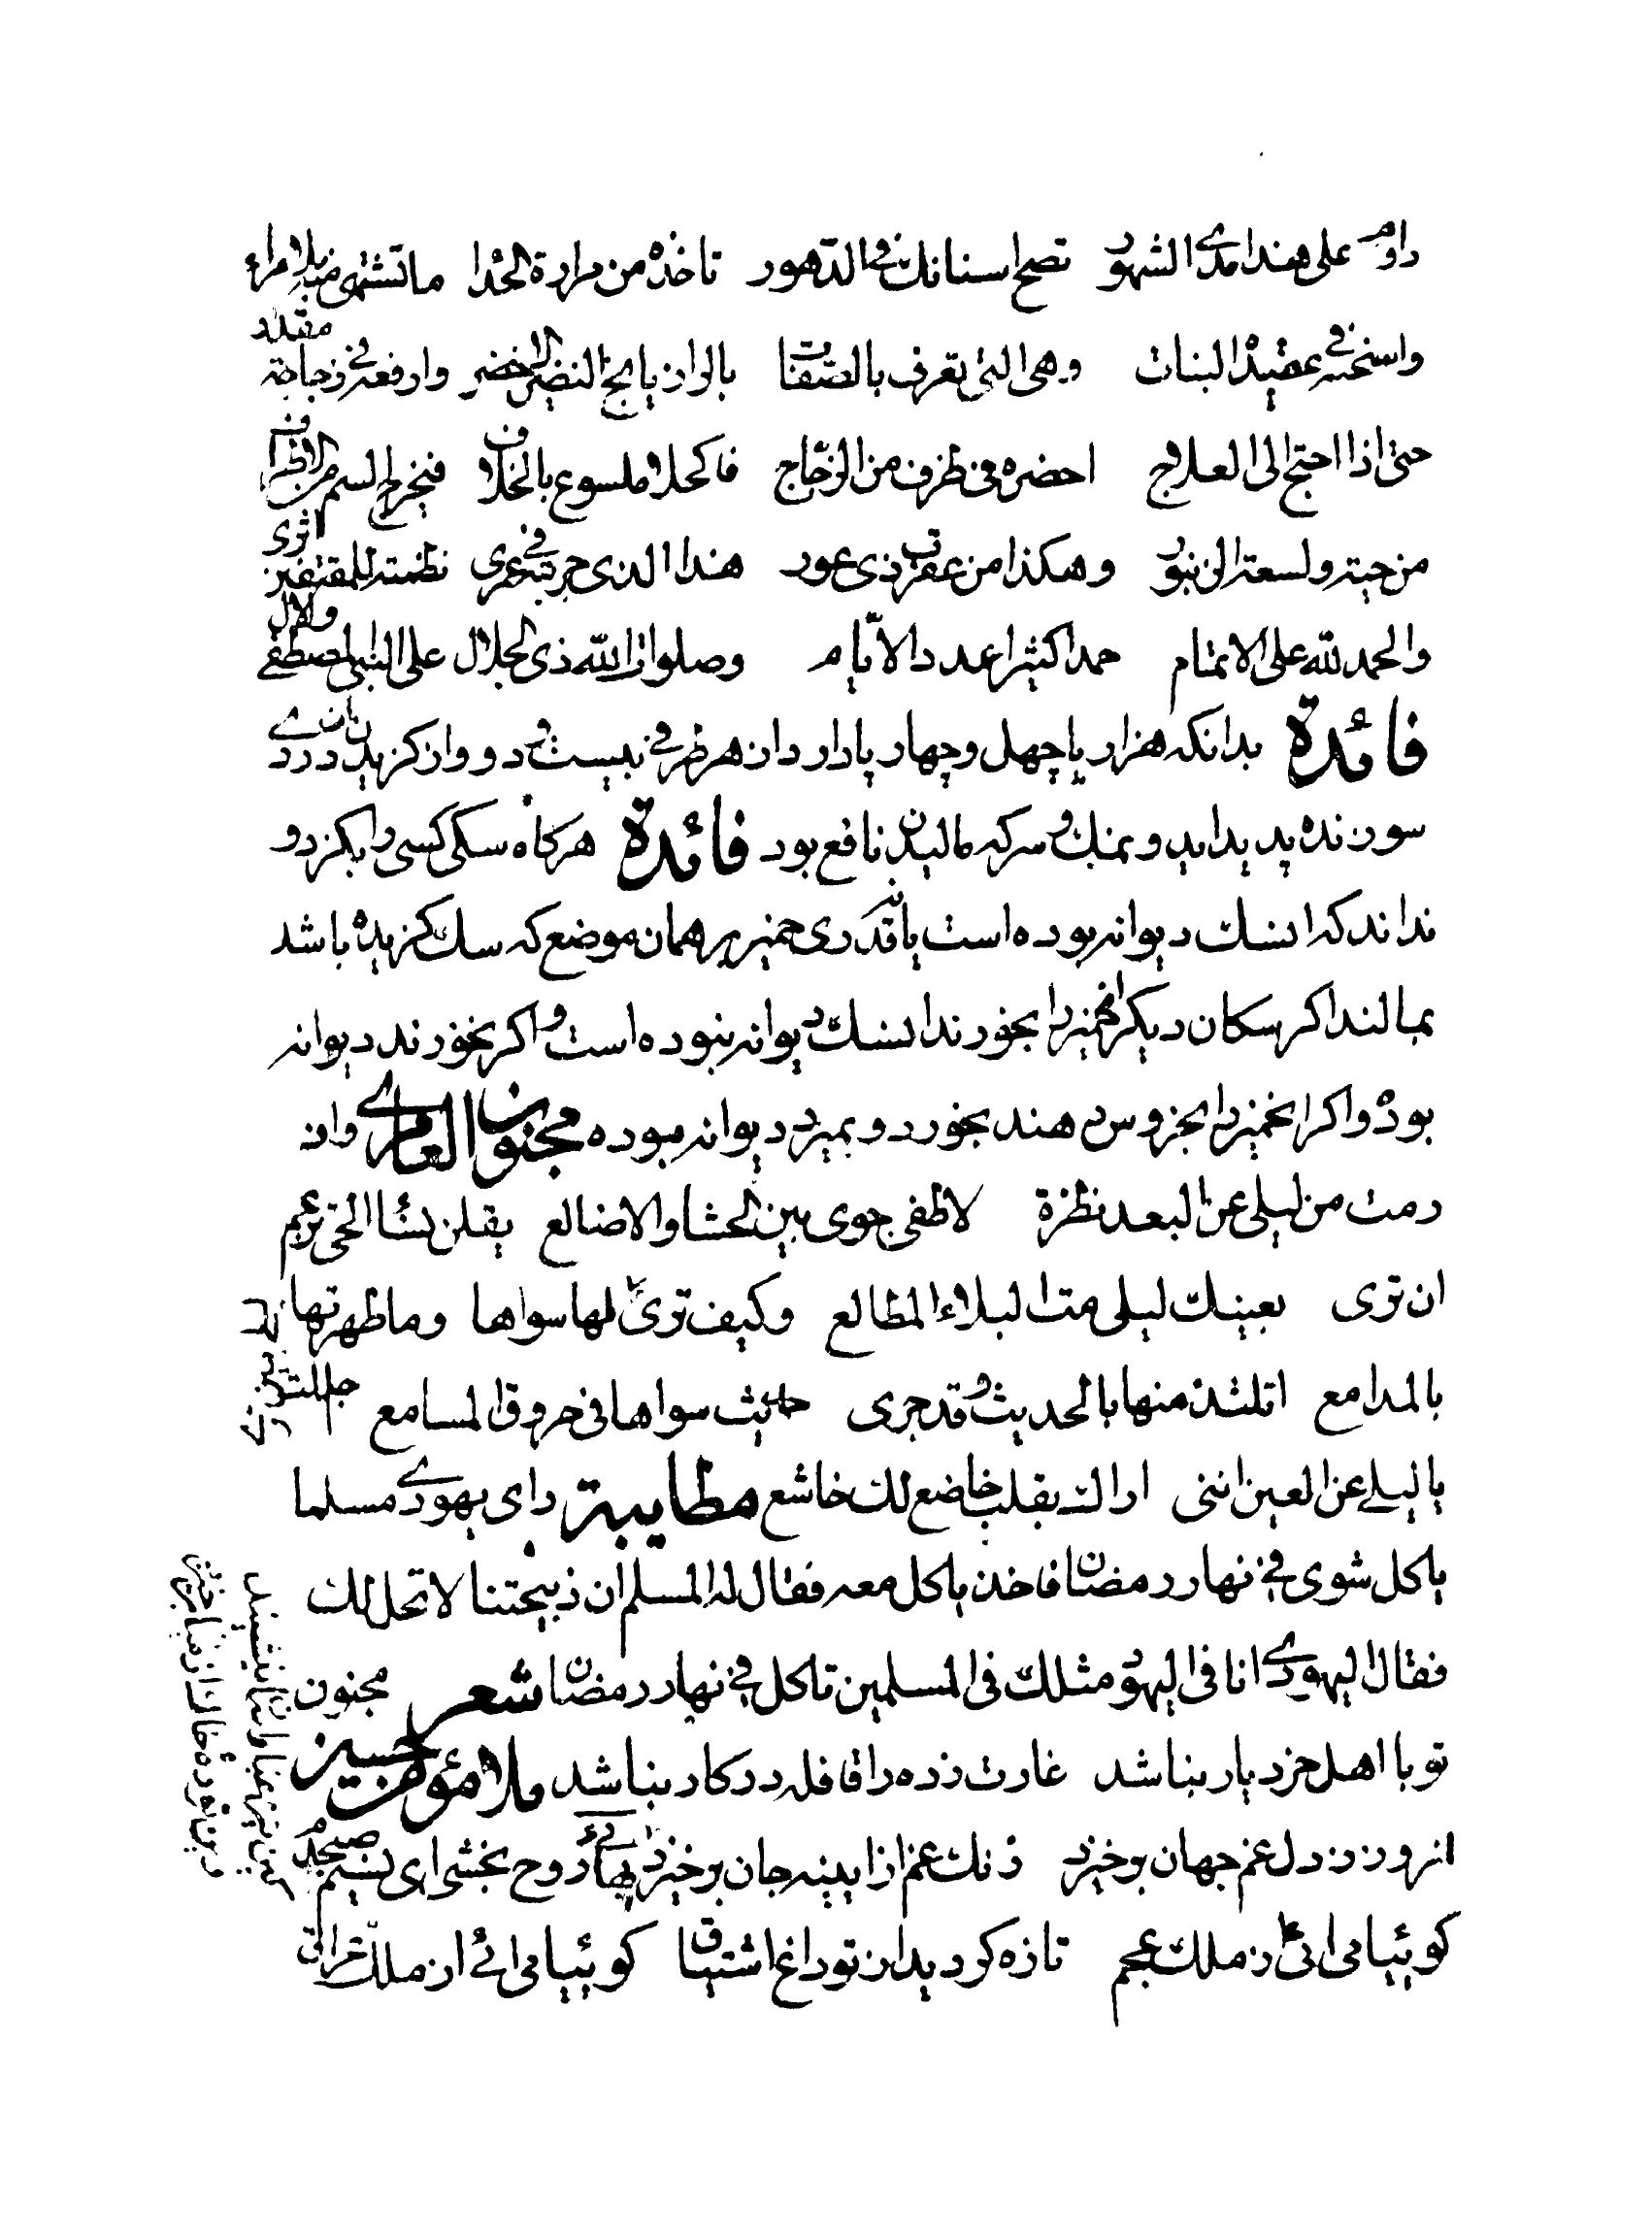 داوم على هذا مدى الشهور تصح اسنانك في الدهور تاخذ من مرارة الحدا ما تشتهى منه بلا مراء
واسخنه في عقيد البنات وهي التي تعرف بالصفات بالرازيانج النضير الاخضر وارفعه في زجاجة مقدر
حتى اذا احتج الى العلاج احضره في ظرف من الزجاج فاكحلا ملسوع بالخلاف فيخرج السم من الاطراف
من حية ولسعة الزنبور وهكذا من عقرب ذي عور هذا الذي جربته في عمري نظمته للمقتفين اثري
والحمد لله على الاتمام حمدا كثيرا عدد الايام وصلوات الله ذي الجلال على النبي المصطفى والال
فائدة بدانكه هزار پا چهل و چهار پا دارد از هر طرفي بيست و دو و از گزيدن او دردى
سوزنده پديد ايد و نمك و سركه ماليدن نافع بود فائدة هرگاه سگى كسى را بگزد و
نداند كه ان سگ ديوانه بوده است يا نه قدرى خمير بر همان موضع كه سگ گزيده باشد
بمالند اگر سگان ديگر ان خمير را بخورند ان سگ ديوانه نبوده است و اگر نخورند ديوانه
بوده و اگر ان خمير را بخروس دهند بخورد و بميرد ديوانه بوده مجنون العامري وان
رمت من ليلى عن البعد نظرة لاطفى جوى بين الحشا والاضالع يقلن نساء الحى تزعم
ان ترى بعينك ليلى مت البلاء المطالع وكيف ترى ليلى بعين ترى بها سواها وما طهرتها
بالمدامع اتلتذ منها بالحديث وقد جرى حديث سواها في خروق المسامع جللت
يا ليلى عن العين انني اراك بقلب خاضع لك خاشع مطايبة راى يهودي مسلما
ياكل شوى في نهار رمضان فاخذ ياكل معه فقال له المسلم ان ذبيحتنا لا تحل لك
فقال اليهودي انا في اليهود مثلك في المسلمين تاكل في نهار رمضان شعر مجنون
تو با اهل خرد يار نباشد غارت زده را قافله در كار نباشد ملا مؤمن حسين
از ورزدل غم جهان برخيزد زنك غم از اينه جان برخيزد روح بخشى اى نسيم صبحدم
گوئيا مى ائى ز ملك عجم تازه گرديد از تو داغ اشتياق گوئيا مى ائى از ملك عراق